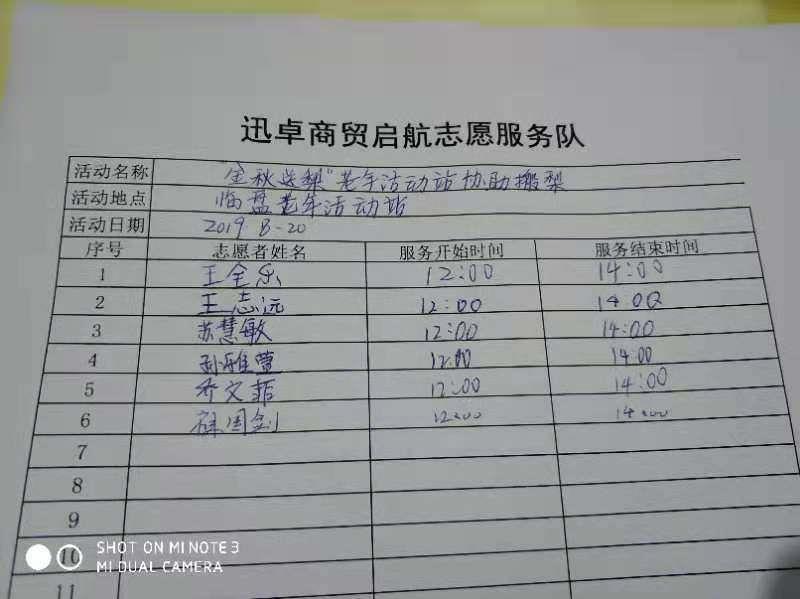 迅卓商贸启航志愿服务队
活动名称 "金秋送梨"老年活动站协助搬梨
活动地点 临盘老年活动站
活动日期 2019 8-20
序号 志愿者姓名 服务开始时间 服务结束时间
1 王全乐 12:00 14:00
2 王志远 12:00 14:00
3 苏慧敏 12:00 14:00
4 孙雅萱 12:00 14:00
5 乔文菲 12:00 14:00
6 国剑 12:00 14:00
7
8
9
10
11
SHOT ON MI NOTE 3
MI DUAL CAMERA